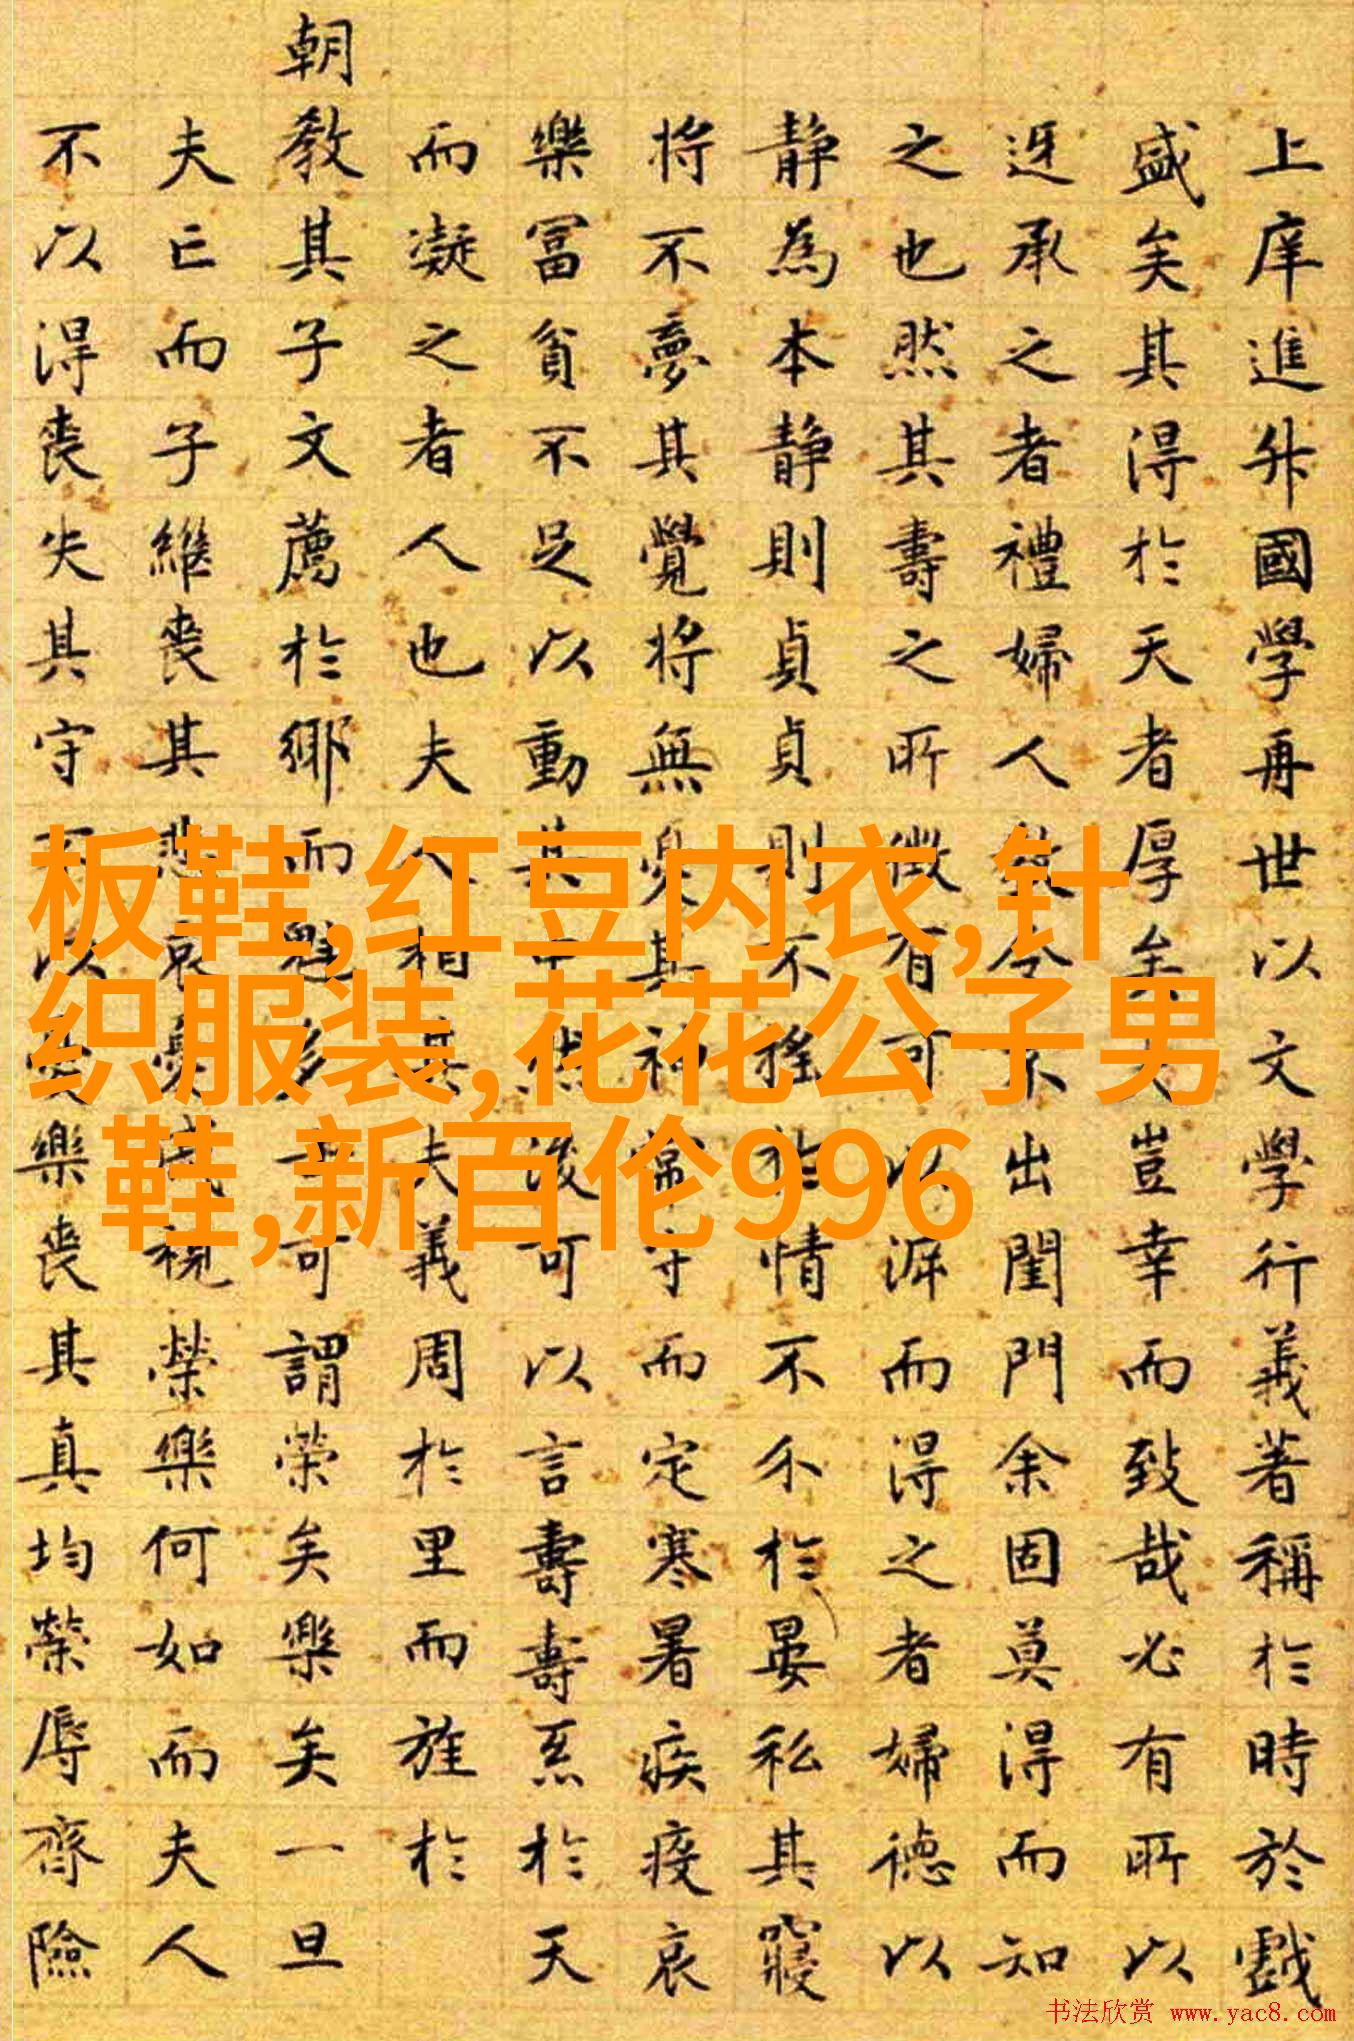 上庠進升國學再世以文學行義著稱於時於戲
盛矣其得於天者厚矣豈幸而致哉必有所以
迓承之者禮婦人令不出閨門余固莫得而知
之也然其壽之所微有可以涯而得之者婦德以
静為本静則貞貞則不摇於情不尒於晏私其寝
将不夢其覺将無其神守而定寒暑疾疫哀
樂冨貧不足以動其然後可以言壽壽於天
而凝之者人也夫人相其夫義周於里而旌於
朝教其子文薦於鄉而可謂榮矣樂矣一旦
夫亡而子繼丧其悲哀憂戚視榮樂何如而夫人
不以得丧失其守不以樂丧其真均榮辱齊險
板鞋,红豆内衣,针
织服装,花花公子男
鞋,新百伦996
书法欣赏 www.yac8.com